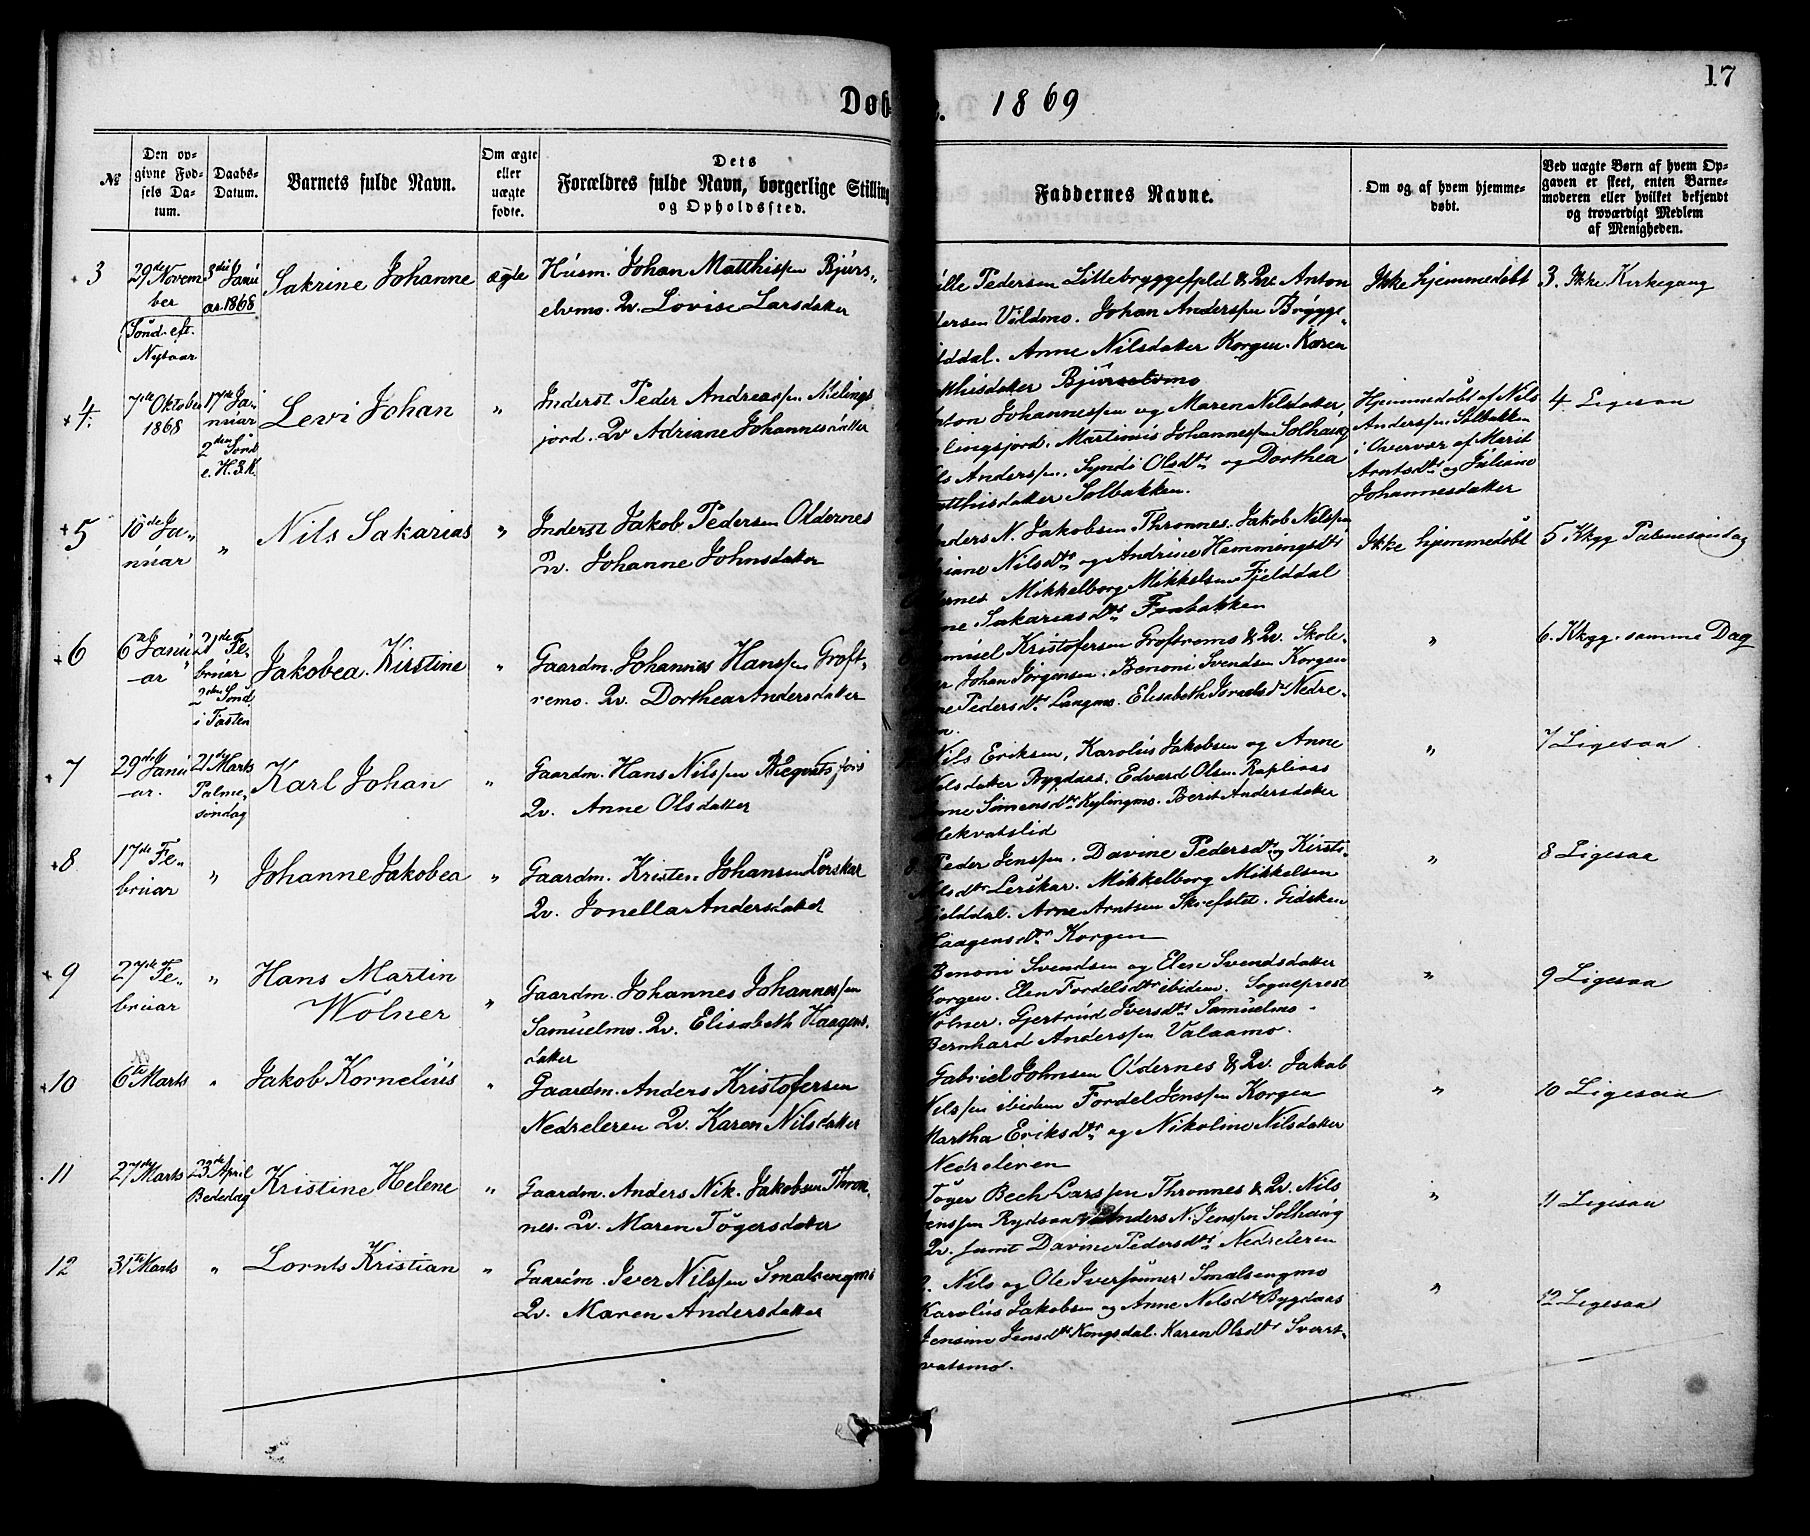 17
Døb
1869
№
Den opgivne Fødsels Datum.
Daabs-Datum.
Barnets fulde Navn.
Om ægte eller uægte fødte.
Dets Forældres fulde Navn, borgerlige Stilling og Opholdssted.
Faddernes Navne.
Om og af hvem hjemmedøbt.
Ved uægte Børn af hvem Opgaven er skeet, enten Barnemoderen eller hvilket bekjendt og troværdigt Medlem af Menigheden.
3
29de Novem
ber
(Sønd. eft.
Nytaar
3die Janu
ar. 1868
Sakrine Johanne
ægte
Husm. Johan Matthissen Bjurs-
elvmo. Qv. Lovise Larsdatter
Pedersen Litlebryggefjeld & Qv. Anton
dersen Vildmo. Johan Anderssen Brygge-
lddal. Anne Nilsdatter Korgen. Karen
thisdatter Bjurselvmo
Ikke hjemmedøbt
3. Ikke Kirkegang
4.
7de Oktober
1868
17de Ja-
nuar
2den Sønd
e. H.3.K.
Levi Johan
"
Inderst. Peder Andreassen
jord. Qv Adriane Johannesdatter
nton Johannessen og Maren Nilsdatter,
lingsjord. Martinus Johannessen Solhaug
ls Anderssen, Olsdtr og Dorthea
atthisdatter Solbakken.
Hjemmedøbt af Nils
Anderssen Solbakken
i Overvær af Marit
Arntsdtr og Juliane
Johannesdatter
4. Ligesaa
5
10de Ja-
nuar
"
Nils Sakarias
"
Inderst Jakob Pedersen Oldernes
Qv. Johanne Johnsdatter
nders N. Jakobsen Thronnes. Jakob Nilssen
riane Nilsdtr og Andrine Hemmingsdtr
dernes Mikkelborg Mikkelsen Fjelddal
ne Sakariasdtr Forbakken
Ikke hjemmedøbt
5 Kkgg Palmesøndag
6
6te Janu
-ar
21de Fe-
bruar
2den Sønd
i Fasten
Jakobea Kirstine
"
Gaardm. Johannes Hanssen Groft-
remo. Qv. Dorthea Andersdatter
muel Kristofersen Groftremo & Qv. Skole-
er Johan Jørgensen. Benoni Svendsen Korgen
ne Pedersdtr Langmo. Elisabeth Isrelsdtr Nedre-
en.
"
6. Kkgg. samme Dag
7
29de Janu
-ar.
21de Marts
Palme-
søndag
Karl Johan
"
Gaardm. Hans Nilssen
Qv. Anne Olsdatter
Nils Eriksen, Karolus Jakobsen og Anne
Nilsdatter Bygdaas. Edvard Olsen Rapliaas
nne Simensdtr Kylingmo. Berit Andersdatter
lekvatslid
"
7 Ligesaa
8
17de Fe-
bruar
"
Johanne Jakobea
"
Gaardm. Kristen Johansen Lerskar
Qv. Jonella Andersdatter
8. Peder Jenssen. Davine Pedersdtr og Kirsti-
Nilsdtr Lerskar. Mikkelborg Mikkelsen
jelddal. Arne Arntsen Skrefstet. Gidsken
Haagensdtr Korgen
"
8 Ligesaa
9
27de Fe-
bruar
"
Hans Martin
Wolner
"
Gaardm. Johannes Johannessen
Samuelmo. Qv. Elisabeth Haagens-
datter
Benoni Svendsen og Elen Svendsdatter
Korgen. Elen Fordelsdtr ibidem. Sogneprest
Wolner. Gjertrud Iversdtr Samuelmo.
Bernhard Anderssen Valaamo.
"
9 Ligesaa
10
6te Marts
"
Jakob Kornelius
"
Gaardm. Anders Kristofersen
Nedreleren Qv. Karen Nilsdatter
Gabriel Johnsen Oldernes & Qv. Jakob
Nilssen ibidem Fordel Jenssen Korgen
Martha Eriksdtr og Nikoline Nilsdatter
Nedreleren
"
10 Ligesaa
11
27de Marts
23de April
Bededag
Kristine Helene
"
Gaardm. Anders Nik. Jakobsen Thron-
nes. Qv. Maren Tøgersdatter
Tøger Bech Larssen Thronnes & Qv. Nils
Jenssen Rydsaa Anders N. Jenssen Solhaug
Qv. samt Davine Pedersdtr Nedreleren
"
11 Ligesaa
12
31te Marts
"
Lornts Kristian
"
Gaardm. Iver Nilssen Smalsengmo
Qv. Maren Andersdatter
Nils og Ole Iversønner Smalsengmo
Karolus Jakobsen og Anne Nilsdtr Bygdaas
Jensine Jensdtr Kongsdal. Karen Olsdtr Svart-
vatsmo.
"
12 Ligesaa